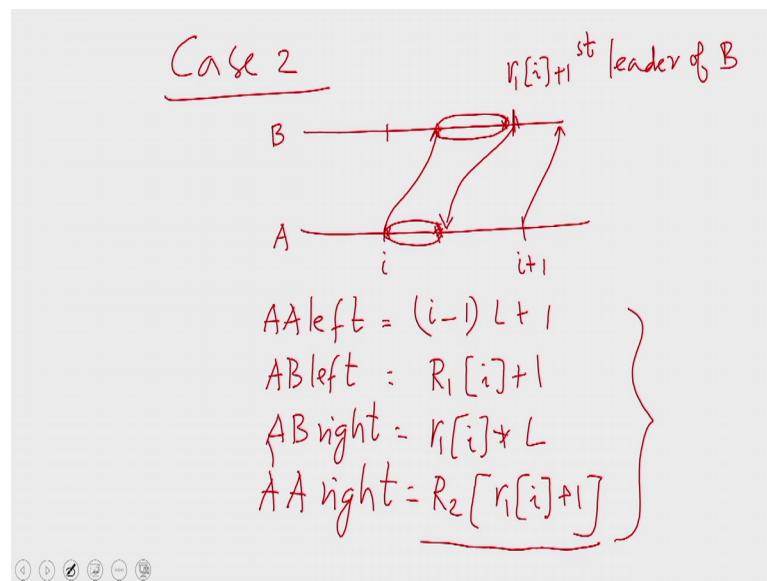 Case 2
r₁[i]+1st leader of B
B
A
i i+1
AAleft = (i-1) L + 1
ABleft = R₁[i]+1
ABright = r₁[i] * L
AAright = R₂[r₁[i]+1]